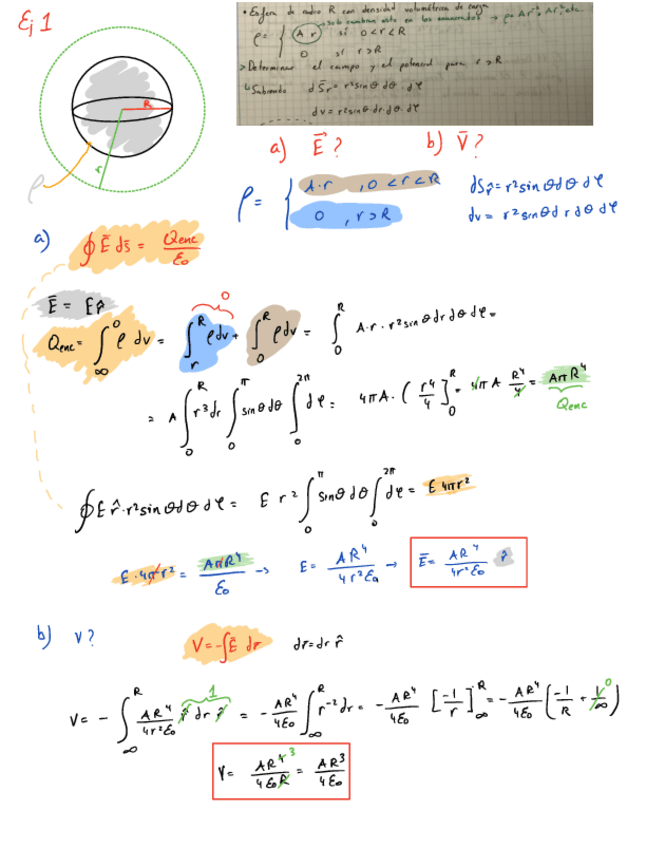 Ej 1
• Esfera de radio R con densidad volumétrica de carga
ρ = { A r si 0 < r < R
0 si r > R
→ solo cambian esto en los enunciados → ρ = Ar², Ar³, etc.
> Determinar el campo y el potencial para r > R
↳ Sabiendo dS_r = r² sin θ dθ · dφ
dv = r² sin θ · dr · dθ · dφ
R
r
ρ
a) E⃗ ? b) V̄ ?
ρ = { A·r , 0 < r < R
0 , r > R
dS r̂ = r² sin θ dθ dφ
dv = r² sin θ d r dθ dφ
a) ∮ Ē ds̄ = Qenc/ε₀
Ē = E r̂
0
Qenc = ∫_∞^0 ρ dv = ∫_r^R ρ dv + ∫_0^R ρ dv = ∫_0^R A·r · r² sin θ dr dθ dφ =
= A ∫_0^R r³ dr ∫_0^π sin θ dθ ∫_0^2π dφ = 4πA · (r⁴/4]_0^R = 4πA R⁴/4 = AπR⁴
Qenc
∮ E r̂ · r² sin θ dθ dφ = E r² ∫_0^π sin θ dθ ∫_0^2π dφ = E 4πr²
E · 4πr² = AπR⁴/ε₀ → E = AR⁴/4r²ε₀ → Ē = AR⁴/4r²ε₀ r̂
b) V? V = -∫ Ē dr̄ dr̄ = dr r̂
1 0
V = - ∫_∞^R AR⁴/4r²ε₀ r̂ dr r̂ = - AR⁴/4ε₀ ∫_∞^R r⁻² dr = - AR⁴/4ε₀ [-1/r]_∞^R = - AR⁴/4ε₀ (-1/R + 1/∞)
V = AR⁴ ³/4ε₀R = AR³/4ε₀